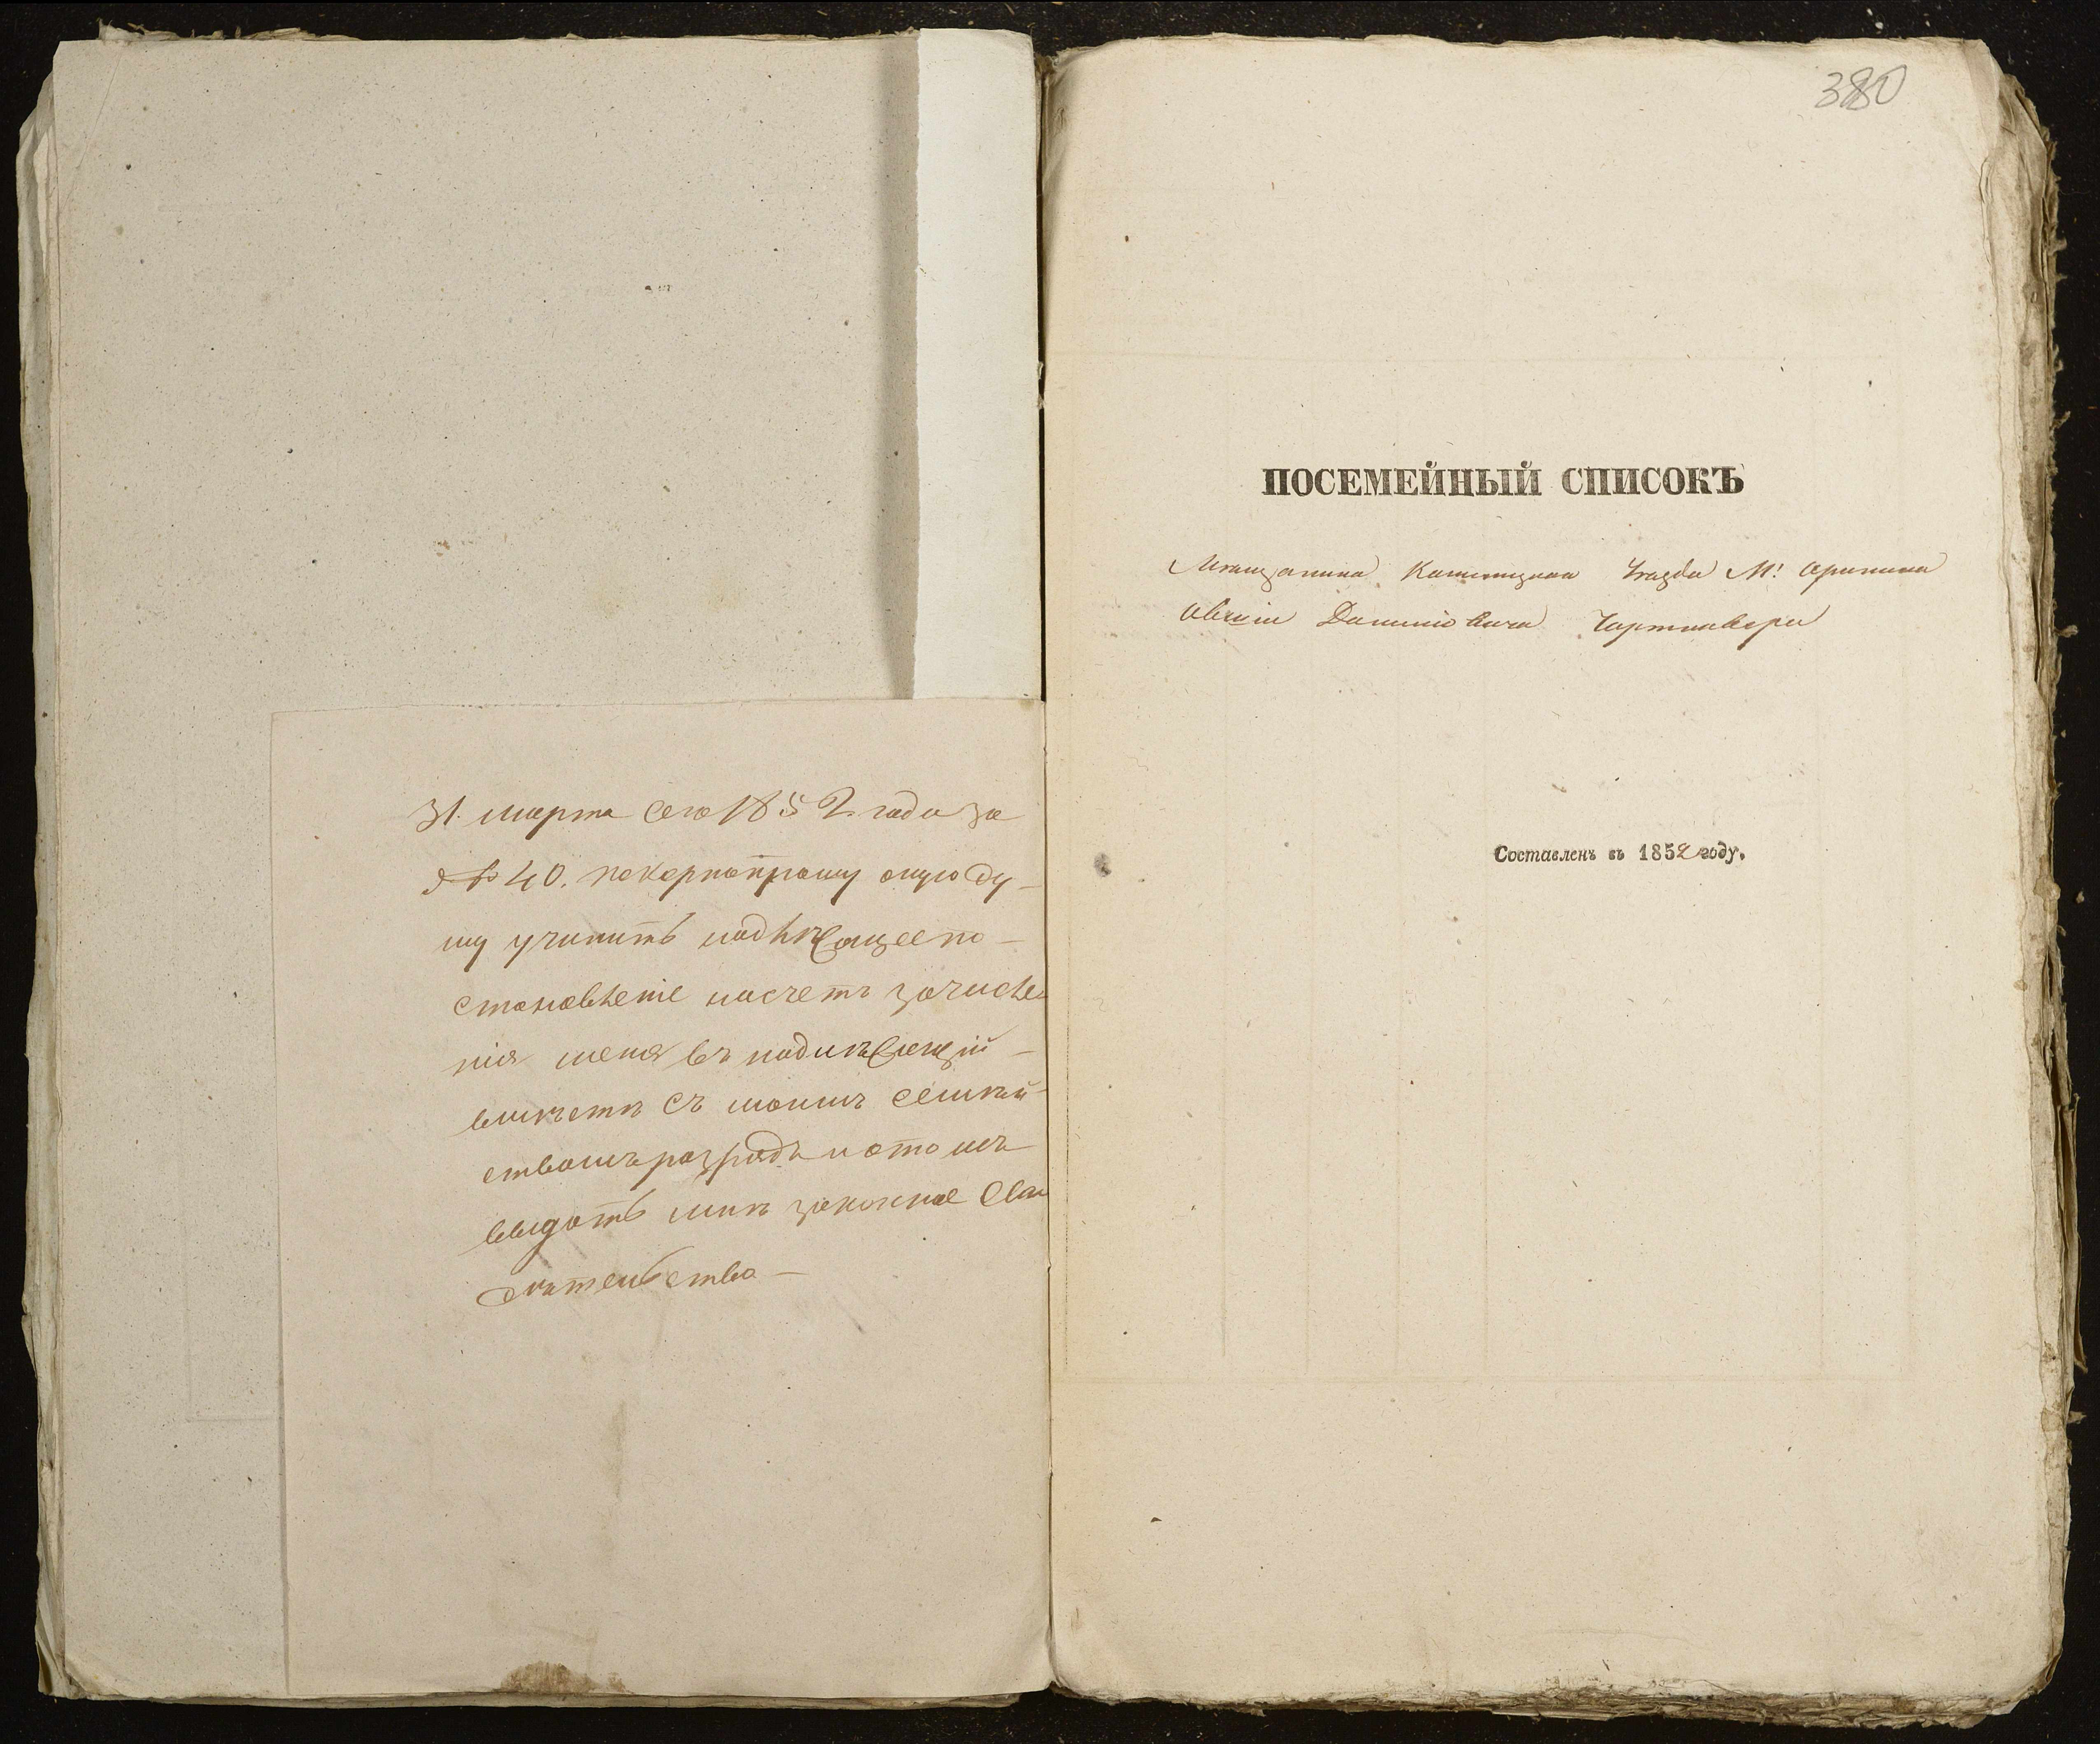 31. марта сего 1852. года за
№ 40. покорнопрошу оную Ду-
му учинить надлежащее по-
становленіе насчетъ зачисле
нія меня въ надлежащій-
вмѣстѣ съ моимъ семѣй-
ствомъ разрядъ и отомъ
выдать мнѣ законное Сви
дѣтельство-
380
ПОСЕМЕЙНЫЙ СПИСОКЪ
Мѣщанина Каменецкаго Уѣзда М: Оринина
Данилов
Составленъ въ 1852 году.